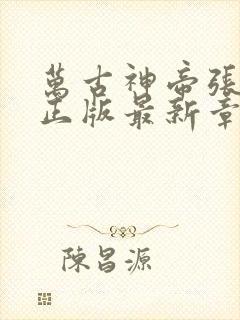 萬古神帝張
正版最新章
陳昌源